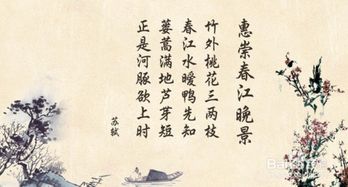 惠崇春江晚景
竹外桃花三两枝
春江水暧鸭先知
蒌蒿满地芦芽短
正是河豚欲上时
苏轼